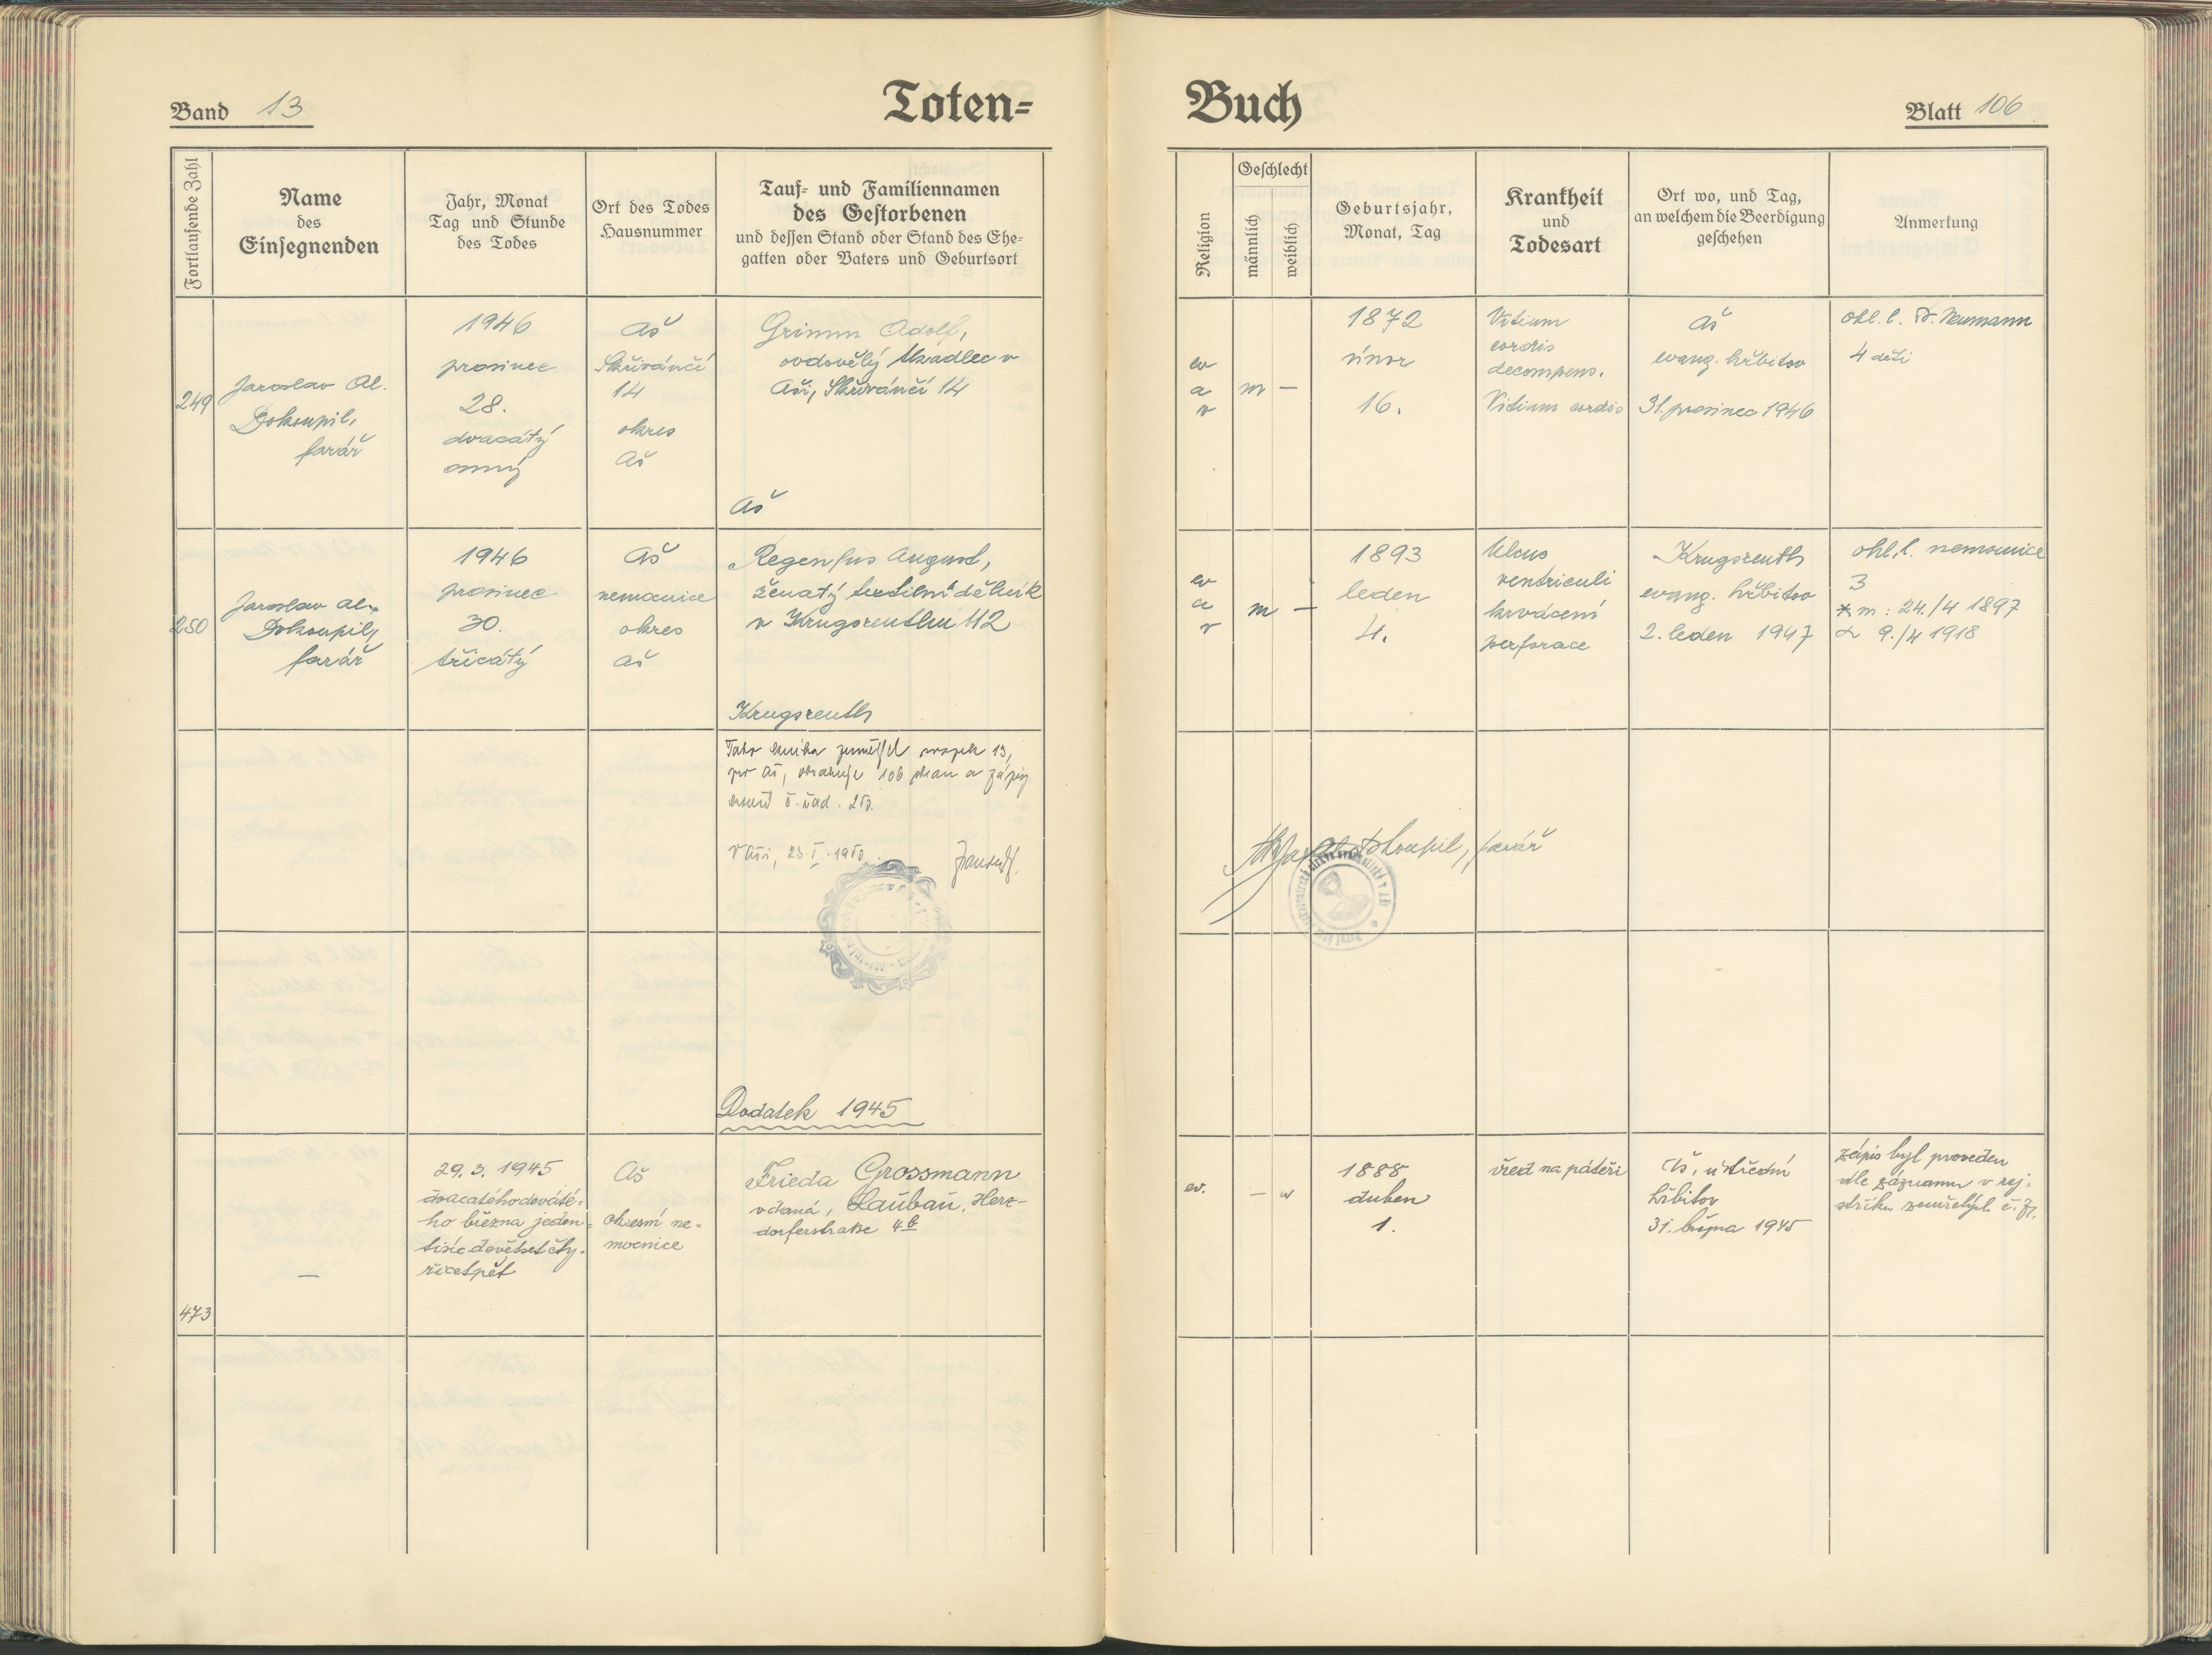 Band 13
Toten=
Fortlaufende Zahl
Name
des
Einsegnenden
Jahr, Monat
Tag und Stunde
des Todes
Ort des Todes
Hausnummer
Tauf- und Familiennamen
des Gestorbenen
und dessen Stand oder Stand des Ehe-
gatten oder Vaters und Geburtsort
249
Jaroslav Al.
Dokoupil,
farář
1946
prosinec
28.
dvacátý
osmý
Aš
Skřivánčí
14
okres
Aš
Grimm Adolf,
ovdovělý tkadlec v
Aši, Skřivánčí 14
Aš
250
Jaroslav Al.
Dokoupil,
farář
1946
prosinec
30.
třicátý
Aš
nemocnice
okres
Aš
Regenfus August,
ženatý textilní dělník
v Krugsreuthu 112
Krugsreuth
Tato kniha zemřel svazek 13,
pro Aš, obsahuje 106 stran a zápisy
končí č. řad. 250.
V Aši, 23.I.1950
Dodatek 1945
473
—
29. 3. 1945
dvacátéhodeváté-
ho března jeden-
tisícdevětsetčty-
řicetpět
Aš
okresní ne-
mocnice
Frieda Grossmann
vdaná, Lauban, Herz-
dorferstraße 4b
Buch
Blatt 106
Religion
Geschlecht
männlich
weiblich
Geburtsjahr,
Monat, Tag
Krankheit
und
Todesart
Ort wo, und Tag,
an welchem die Beerdigung
geschehen
Anmerkung
ev
a
v
m —
1872
únor
16.
Vitium
cordis
decompens.
Vitium cordis
Aš
evang. hřbitov
31. prosinec 1946
ohl. l. Dr. Neumann
4 děti
ev
a
v
m —
1893
leden
4.
Ulcus
ventriculi
krvácení
perforace
Krugsreuth
evang. hřbitov
2. leden 1947
ohl. l. nemocnice
3
* m: 24./4 1897
9./4 1918
Dokoupil, farář
ev.
— w
1888
duben
1.
vřed na páteři
Aš, ústřední
hřbitov
31. března 1945
Zápis byl proveden
dle záznamu v rej-
stříku zemřelých č. 71.